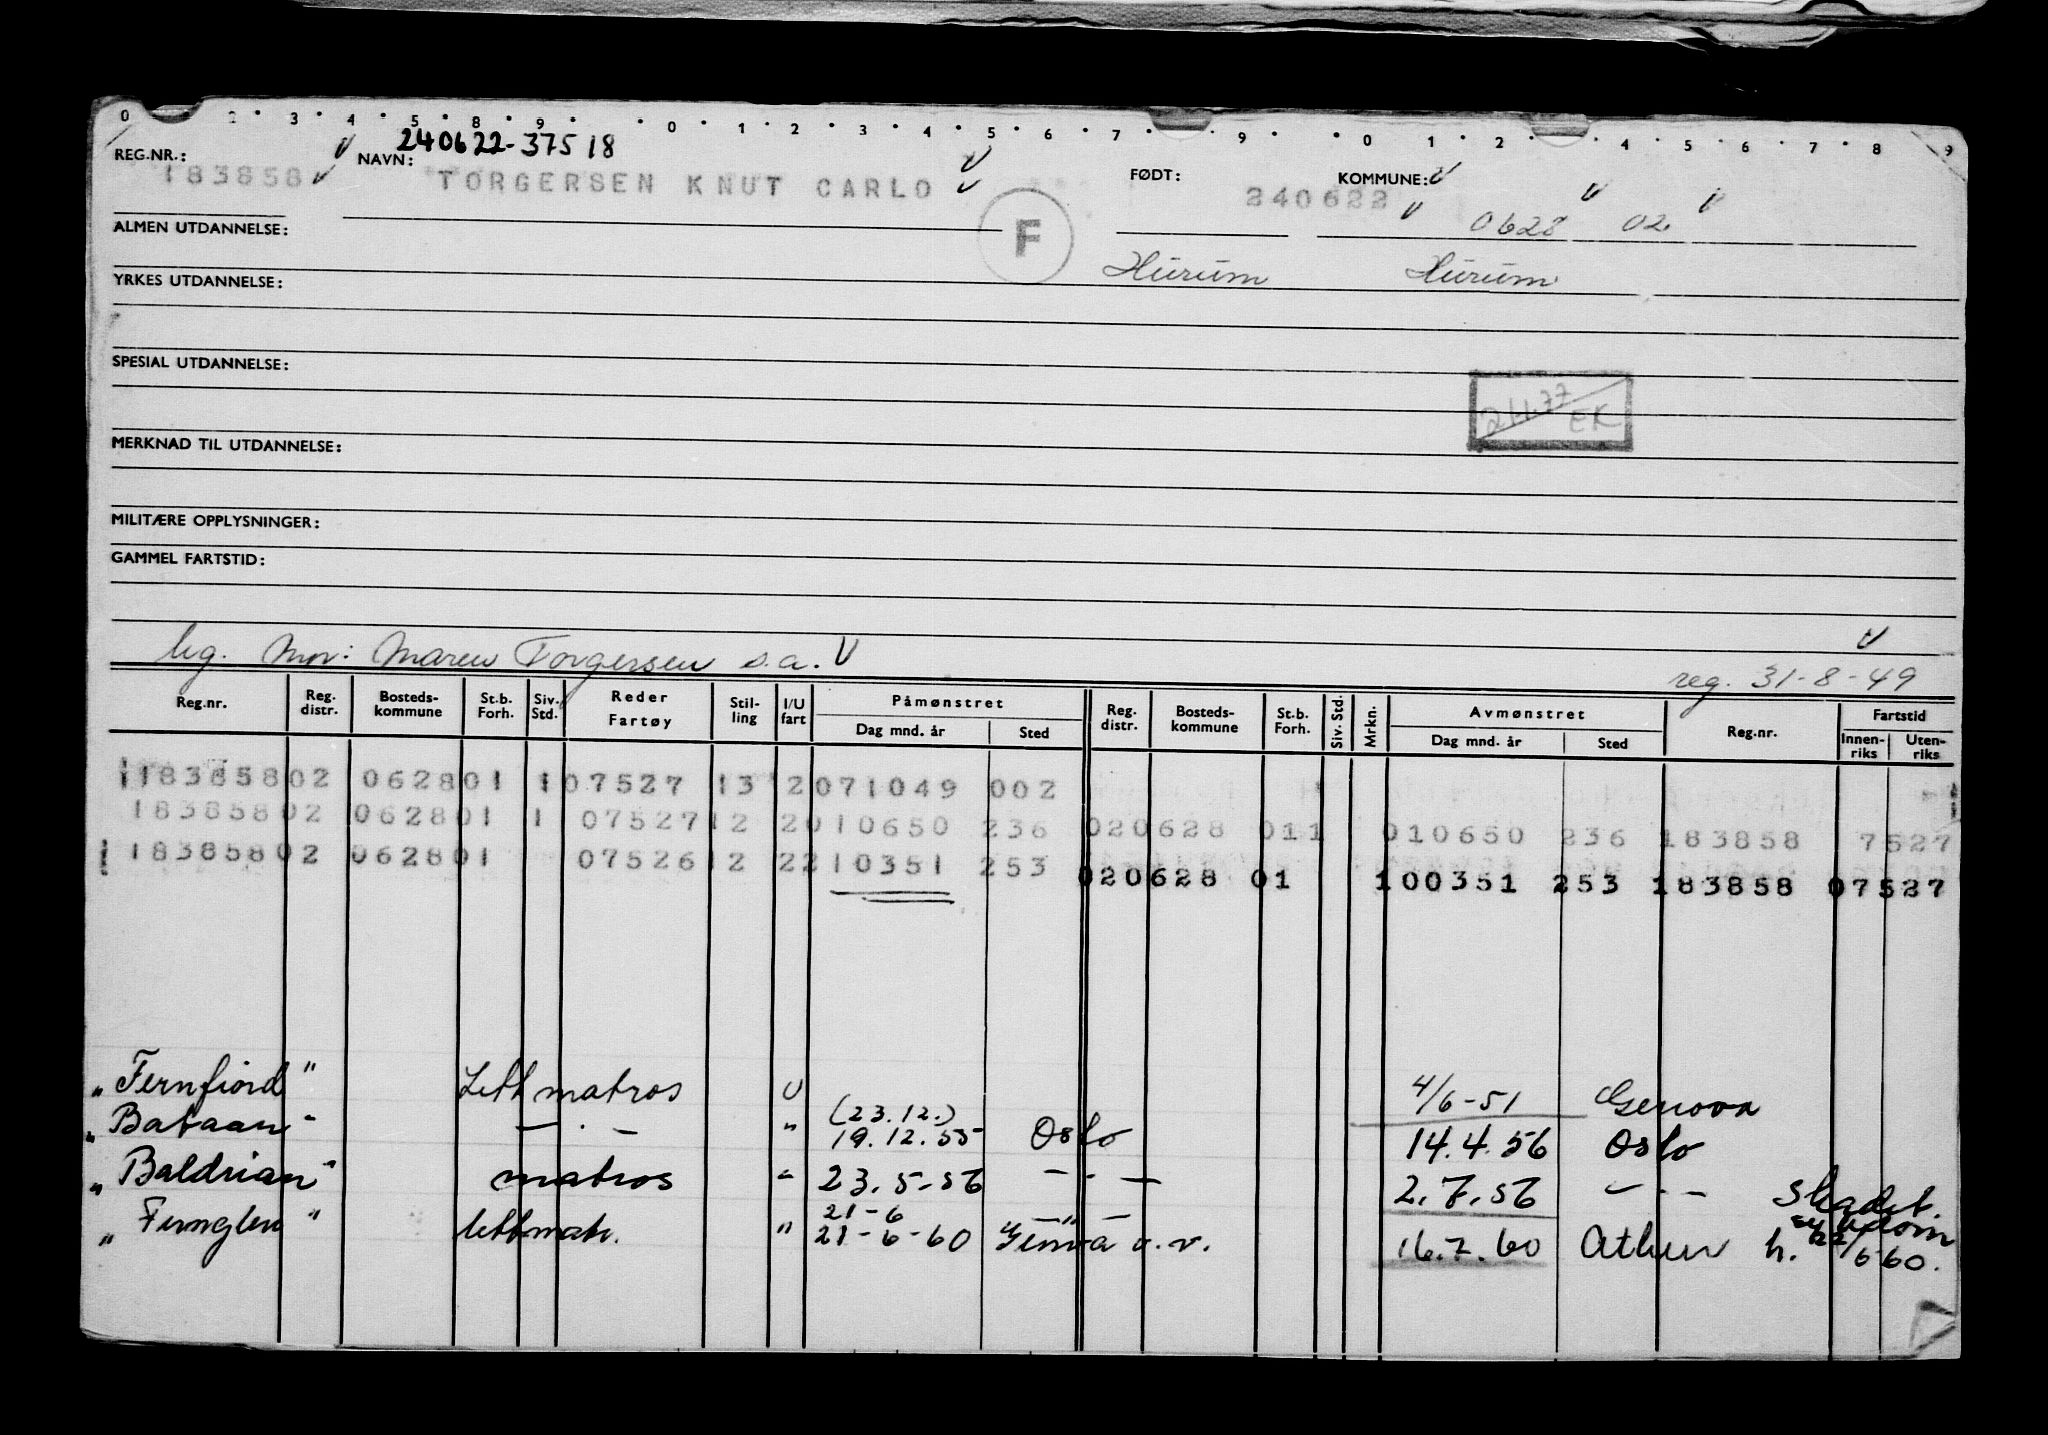 0 2 3 4 5 8 9 0 1 2 3 4 5 6 7 9 0 1 2 4 5 6 7 8 9
240622-37518
REG.NR.: 183858 NAVN: TORGERSEN KNUT CARLO FØDT: 240622 KOMMUNE: 0628 02
ALMEN UTDANNELSE: F Hurum Hurum
YRKES UTDANNELSE:
SPESIAL UTDANNELSE:
EK
MERKNAD TIL UTDANNELSE:
MILITÆRE OPPLYSNINGER:
GAMMEL FARTSTID:
ug. Mor: Maren Torgersen s.a. V
reg. 31-8-49
Reg.nr. Reg. distr. Bosteds-kommune St.b. Forh. Siv. Std. Reder Fartøy Stil-ling I/U fart Påmønstret Dag mnd. år Sted Reg. distr. Bosteds-kommune St.b. Forh. Siv. Std. Mrkn. Avmønstret Dag mnd. år Sted Reg.nr. Fartstid Innen-riks Uten-riks
183858 02 0628 01 1 07527 13 2 071049 002
183858 02 0628 01 1 07527 12 2 010650 236 02 0628 01 1 010650 236 183858 7527
183858 02 0628 01 07526 12 2 210351 253 02 0628 01 100351 253 183858 07527
"Fernfiord" Lettmatros U 4/6-51 Genova
(23.12.)
"Bataan" — · — " 19.12.55 Oslo 14.4.56 Oslo
"Baldrian" matros " 23.5.56 — · — 2.7.56 — · —
21-6 — " —
"Fernglen" lettmatr. " 21-6-60 Genova o.r. 16.7.60 Athen
Skadet
h. /6 60.